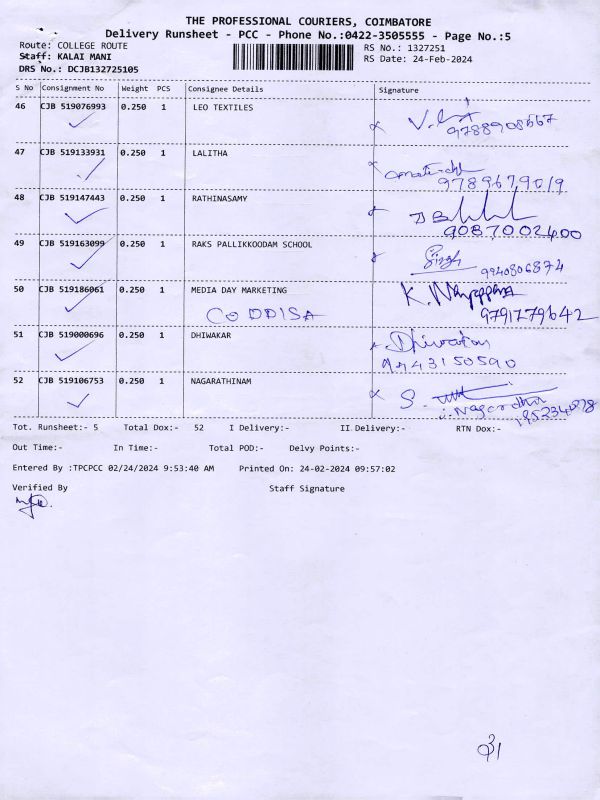 THE PROFESSIONAL COURIERS, COIMBATORE
Delivery Runsheet - PCC - Phone No.:0422-3505555 - Page No.:5
Route: COLLEGE ROUTE RS No.: 1327251
Staff: KALAI MANI RS Date: 24-Feb-2024
DRS No.: DCJB132725105
S No Consignment No Weight PCS Consignee Details Signature
46 CJB 519076993 0.250 1 LEO TEXTILES
9788908667
47 CJB 519133931 0.250 1 LALITHA
9789679019
48 CJB 519147443 0.250 1 RATHINASAMY
9087002400
49 CJB 519163099 0.250 1 RAKS PALLIKKOODAM SCHOOL
9940806874
50 CJB 519186061 0.250 1 MEDIA DAY MARKETING
CODDISA 9791779642
51 CJB 519000696 0.250 1 DHIWAKAR Dhiwakar
52 CJB 519106753 0.250 1 NAGARATHINAM S.
Tot. Runsheet:- 5 Total Dox:- 52 I Delivery:- II Delivery:- RTN Dox:-
Out Time:- In Time:- Total POD:- Delvy Points:-
Entered By :TPCPCC 02/24/2024 9:53:40 AM Printed On: 24-02-2024 09:57:02
Verified By Staff Signature